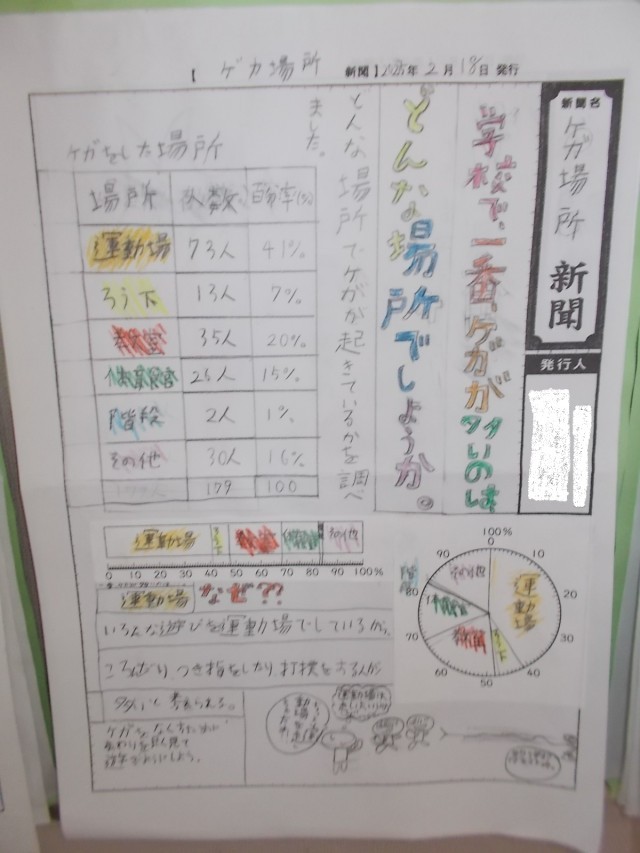 【 ケガ場所 新聞】2025年2月18日 発行
新聞名
ケガ場所 新聞
発行人
学校で、一番、ケガが多いのは
どんな場所でしょうか。
どんな場所でケガが起きているかを調べ
ました。
ケガをした場所
場所 人数 百分率(%)
運動場 73人 41%
ろう下 13人 7%
教室 35人 20%
体育館 25人 15%
階段 2人 1%
その他 30人 16%
179 100
運動場 教室 体育館 その他
0 10 20 30 40 50 60 70 80 90 100%
運動場 なぜ??
いろんな遊びを運動場でしているから、
ころんだり、つき指をしたり、打撲をする人が
多いと考えられる。
ケガをなくすために
まわりをよく見て
100%
0 10 20 30 40 50 60 70 80 90
運動場
ろう下
教室
体育館
階段
その他
運動場は